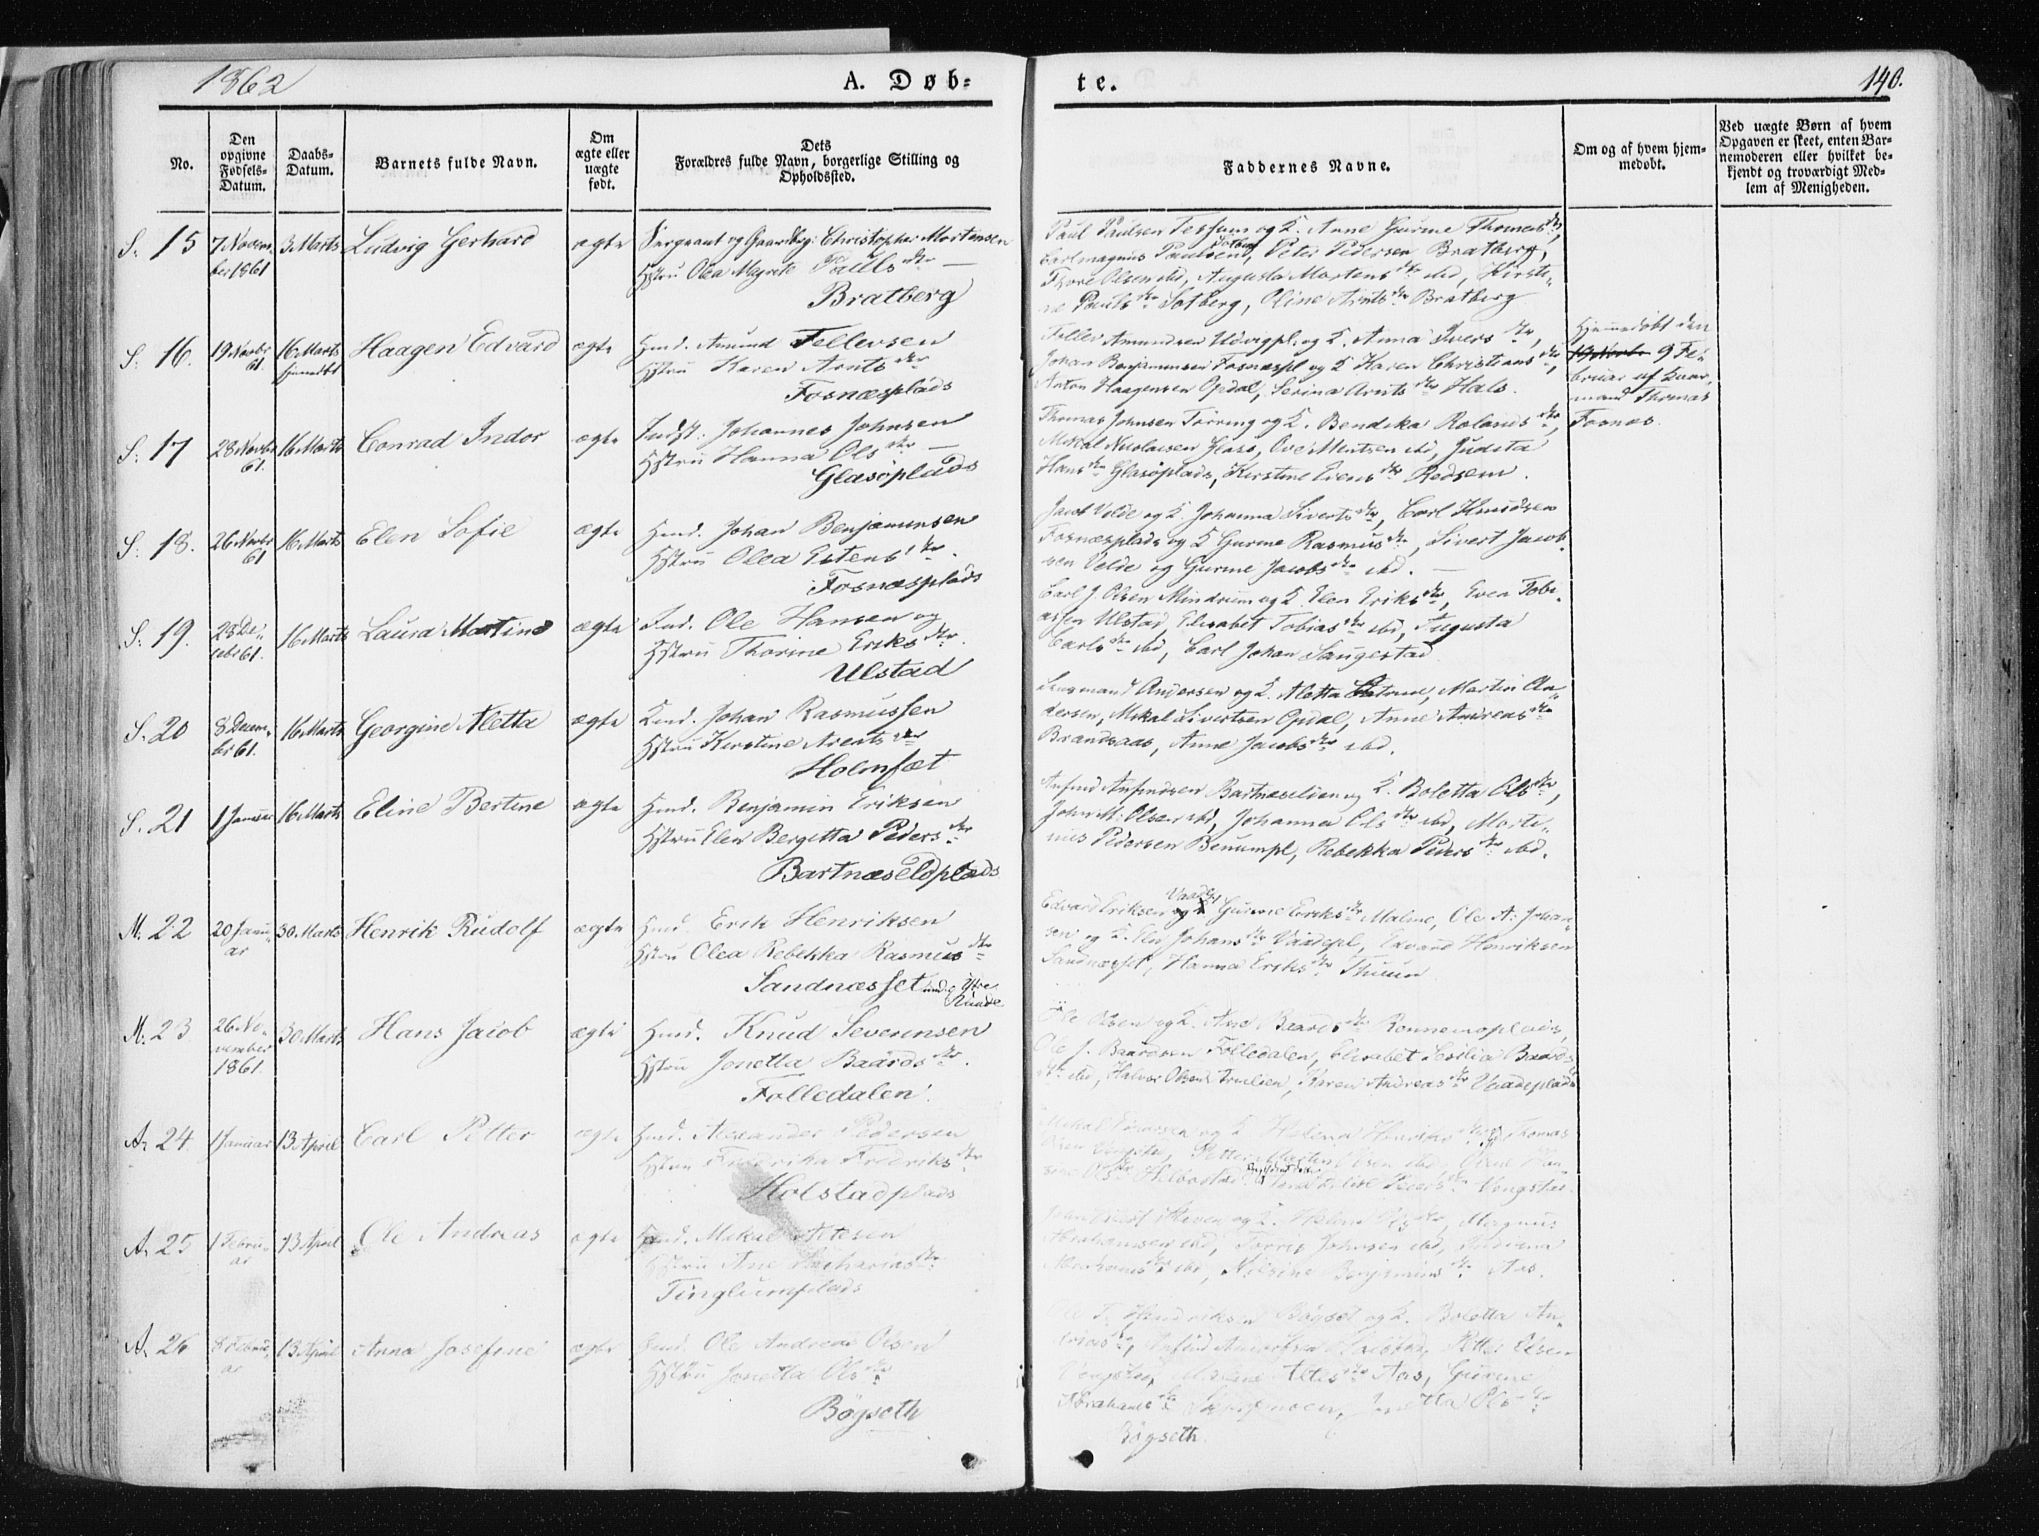 1862
A. Døb-
te.
140.
No.
Den opgivne Fødsels-Datum.
Daabs-Datum.
Barnets fulde Navn.
Om ægte eller uægte født.
Dets Forældres fulde Navn, borgerlige Stilling og Opholdssted.
Faddernes Navne.
Om og af hvem hjemmedøbt.
Ved uægte Børn af hvem Opgaven er skeet, enten Barnemoderen eller hvilket bekjendt og troværdigt Medlem af Menigheden.
S. 15 7 Novem- 3 Marts Ludvig Gerhard ægte Sergeant og Gaardbr: Christopher Mortensen
ber 1861 Hstru Olea Margrete Pauls dtr
Bratberg
Paul Paulsen Tessum og K. Anne Gurine Thomas dtr,
Carl magnus Paulsen Solberg, Peter Pedersen Bratberg,
Thore Olsen ibd, Augusta Mortens dtr ibd, Kirsti-
ne Pauls dtr Solberg, Oline Arnts dtr Bratberg
S: 16. 19 Novbr 16 Marts Haagen Edvard ægte Hmd. Amund Tellevsen
61. hjemmedbt Hstru Karen Arnts dtr
Fosnæsplads
Tellev Amundsen Udvigpl. og K. Anna Ivers dtr,
Johan Benjaminsen Fosnæspl og K Karen Christians dtr,
Anton Haagensen Opdal, Serina Arnts dtr Hals.
Hjemmedøbt den
19 Novbr 9 Fe-
bruar af Gaar-
mand Thomas
Fosnæs.
S: 17 28 Novbr 16 Marts Conrad Indor ægte Indst: Johannes Johnsen
61. Hstru Hanna Ols dtr
Glasöplads
Thomas Johnsen Tørring og K. Bendika Rolands dtr,
Mikal Nicolaisen Glasø, Ove Mentsen ibd, Judita
Hans dtr Glasöplads, Kirstine Evens dtr Rødsem.
S: 18. 26 Novbr 16 Marts Elen Sofie ægte Hmd. Johan Benjaminsen
61 Hstru Olea Estens dtr.
Fosnæsplads
Jacob Velde og K Johanna Siverts dtr, Carl Knudsen
Fosnæsplads og K Gurine Rasmus dtr, Sivert Jacob-
sen Velde og Gurine Jacobs dtr ibd.
S: 19. 28 De- 16 Marts Laura Martine ægte Ind. Ole Hansen og
cebr 61. Hstru Thorine Eriks dtr.
Ulstad
Carl J Olsen Mindrum og K. Elen Eriks dtr, Even Tobi-
assen Ulstad, Elisabet Tobias dtr ibd, Augusta
Carls dtr ibd, Carl Johan Saugestad
S. 20 8 Decem- 16 Marts Georgine Aletta ægte Hmd. Johan Rasmussen
br 61. Hstru Kirstine Arents dtr
Holmset
Andersen og K. Aletta, Martin An-
dersen, Mikal Sivertsen Opdal, Anne Andreas dtr
Brandsaas, Anne Jacobs dtr ibd.
S. 21 1 Januar 16 Marts Eline Bertine ægte Hmd. Benjamin Eriksen
Hstru Elen Bergitta Peders dtr
Bartnæseldplads
Anfind Anfindsen Bartnæselden og K. Boletta Ols dtr,
John M: Olsen ibd, Johanna Ols dtr ibd, Marti-
nus Pedersen Benumpl, Rebekka Peders dtr ibd.
M. 22 20 Janu- 30 Marts Henrik Rudolf ægte Hmd. Erik Henriksen
ar Hstru Olea Rebekka Rasmus dtr
Sandnæsset und. Ytre
Edvard Eriksen og Gurine Eriks dtr Malme, Ole A: Johan-
sen og K. Johans dtr Vaadepl, Edvard Henriksen
Sandnæsset, Hanna Eriks dtr
M. 23 26 No- 30 Marts Hans Jacob ægte Hmd. Knud Severinsen
vember Hstru Jonetta Baards dtr.
1861. Folledalen.
Ole Olsen og K. Ane Baards dtr Rønnemsplads,
Ole J. Baardsen Folledalen, Elisabet Sesilia Baards
dtr ibd, Halvor Olsen, Karen Andreas dtr Vaadeplads
A. 24 1 Januar 13 April Carl Petter ægte Hmd. Alexander Pedersen
Hstru Fredrika Fredriks dtr
Holstadplads
og K Helena Henriks dtr, Thomas
Petter Olsen ibd,
Ols dtr Helbostad Peders dtr Vengstad
A. 25 1 Febru- 13 April Ole Andreas ægte Hmd. Mikal
ar Hstru Ane Zacharias dtr
Tinglumplads
og K. Helena Ols dtr, Magnus
Abrahamsen ibd, Johnsen ibd,
Abrahams dtr ibd, Nilsine Benjamins dtr Aas.
A. 26 8 Febru- 13 April Anna Josefine ægte Hmd. Ole Andreas Olsen
ar Hstru Jonetta Ols dtr
Bøgseth
Ole T. Hendriksen Bøgset og K. Boletta An-
dreas dtr, Petter Olsen
Vengstad, Aas, Gurine
Abrahams dtr, Jonetta Ols dtr
Bøgseth.